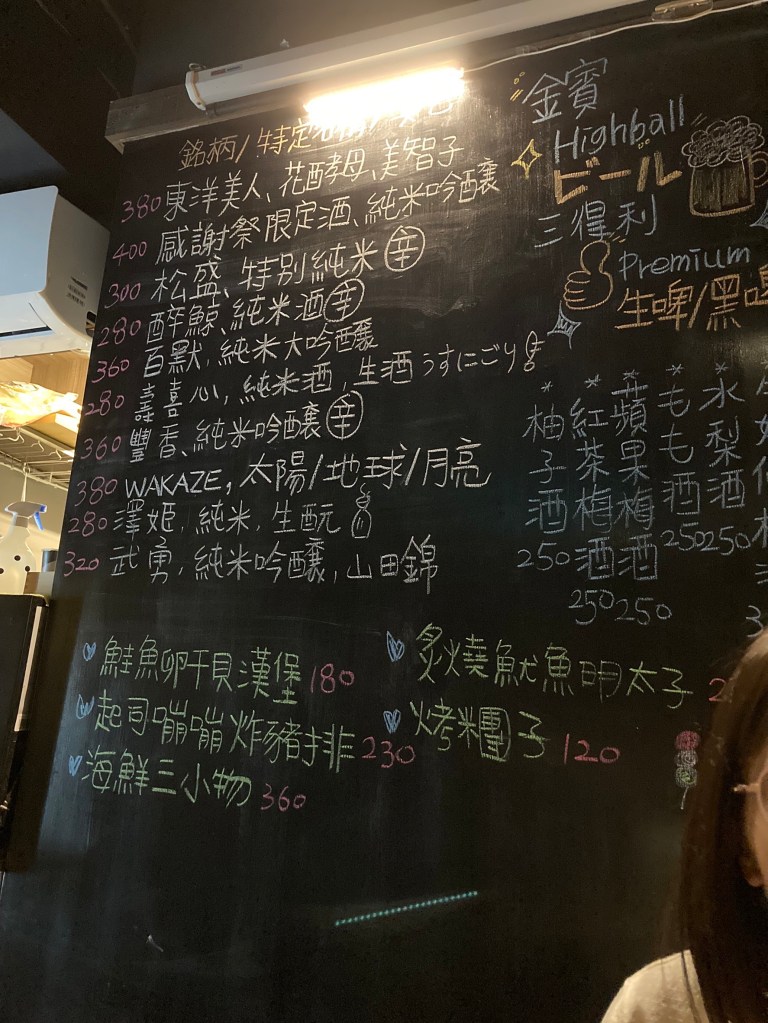 銘柄/特定
380 東洋美人、花酵母、美智子
400 感謝祭限定酒、純米吟釀
300 松盛、特別純米 辛
280 酔鯨、純米酒 辛
360 百黙、純米大吟釀
280 壽喜心，純米酒，生酒うすにごり
360 豐香、純米吟釀 辛
380 WAKAZE，太陽/地球/月亮
280 澤姫，純米，生酛
320 武勇，純米吟釀，山田錦
金賓
Highball
ビール
三得利
Premium
生啤/黑啤
*柚子酒 250
*紅茶梅酒 250
*蘋果梅酒 250
*もも酒 250
*水梨酒 250
鮭魚卵干貝漢堡 180
起司嘣嘣炸豬排 230
海鮮三小物 360
炙燒魷魚明太子
烤糰子 120